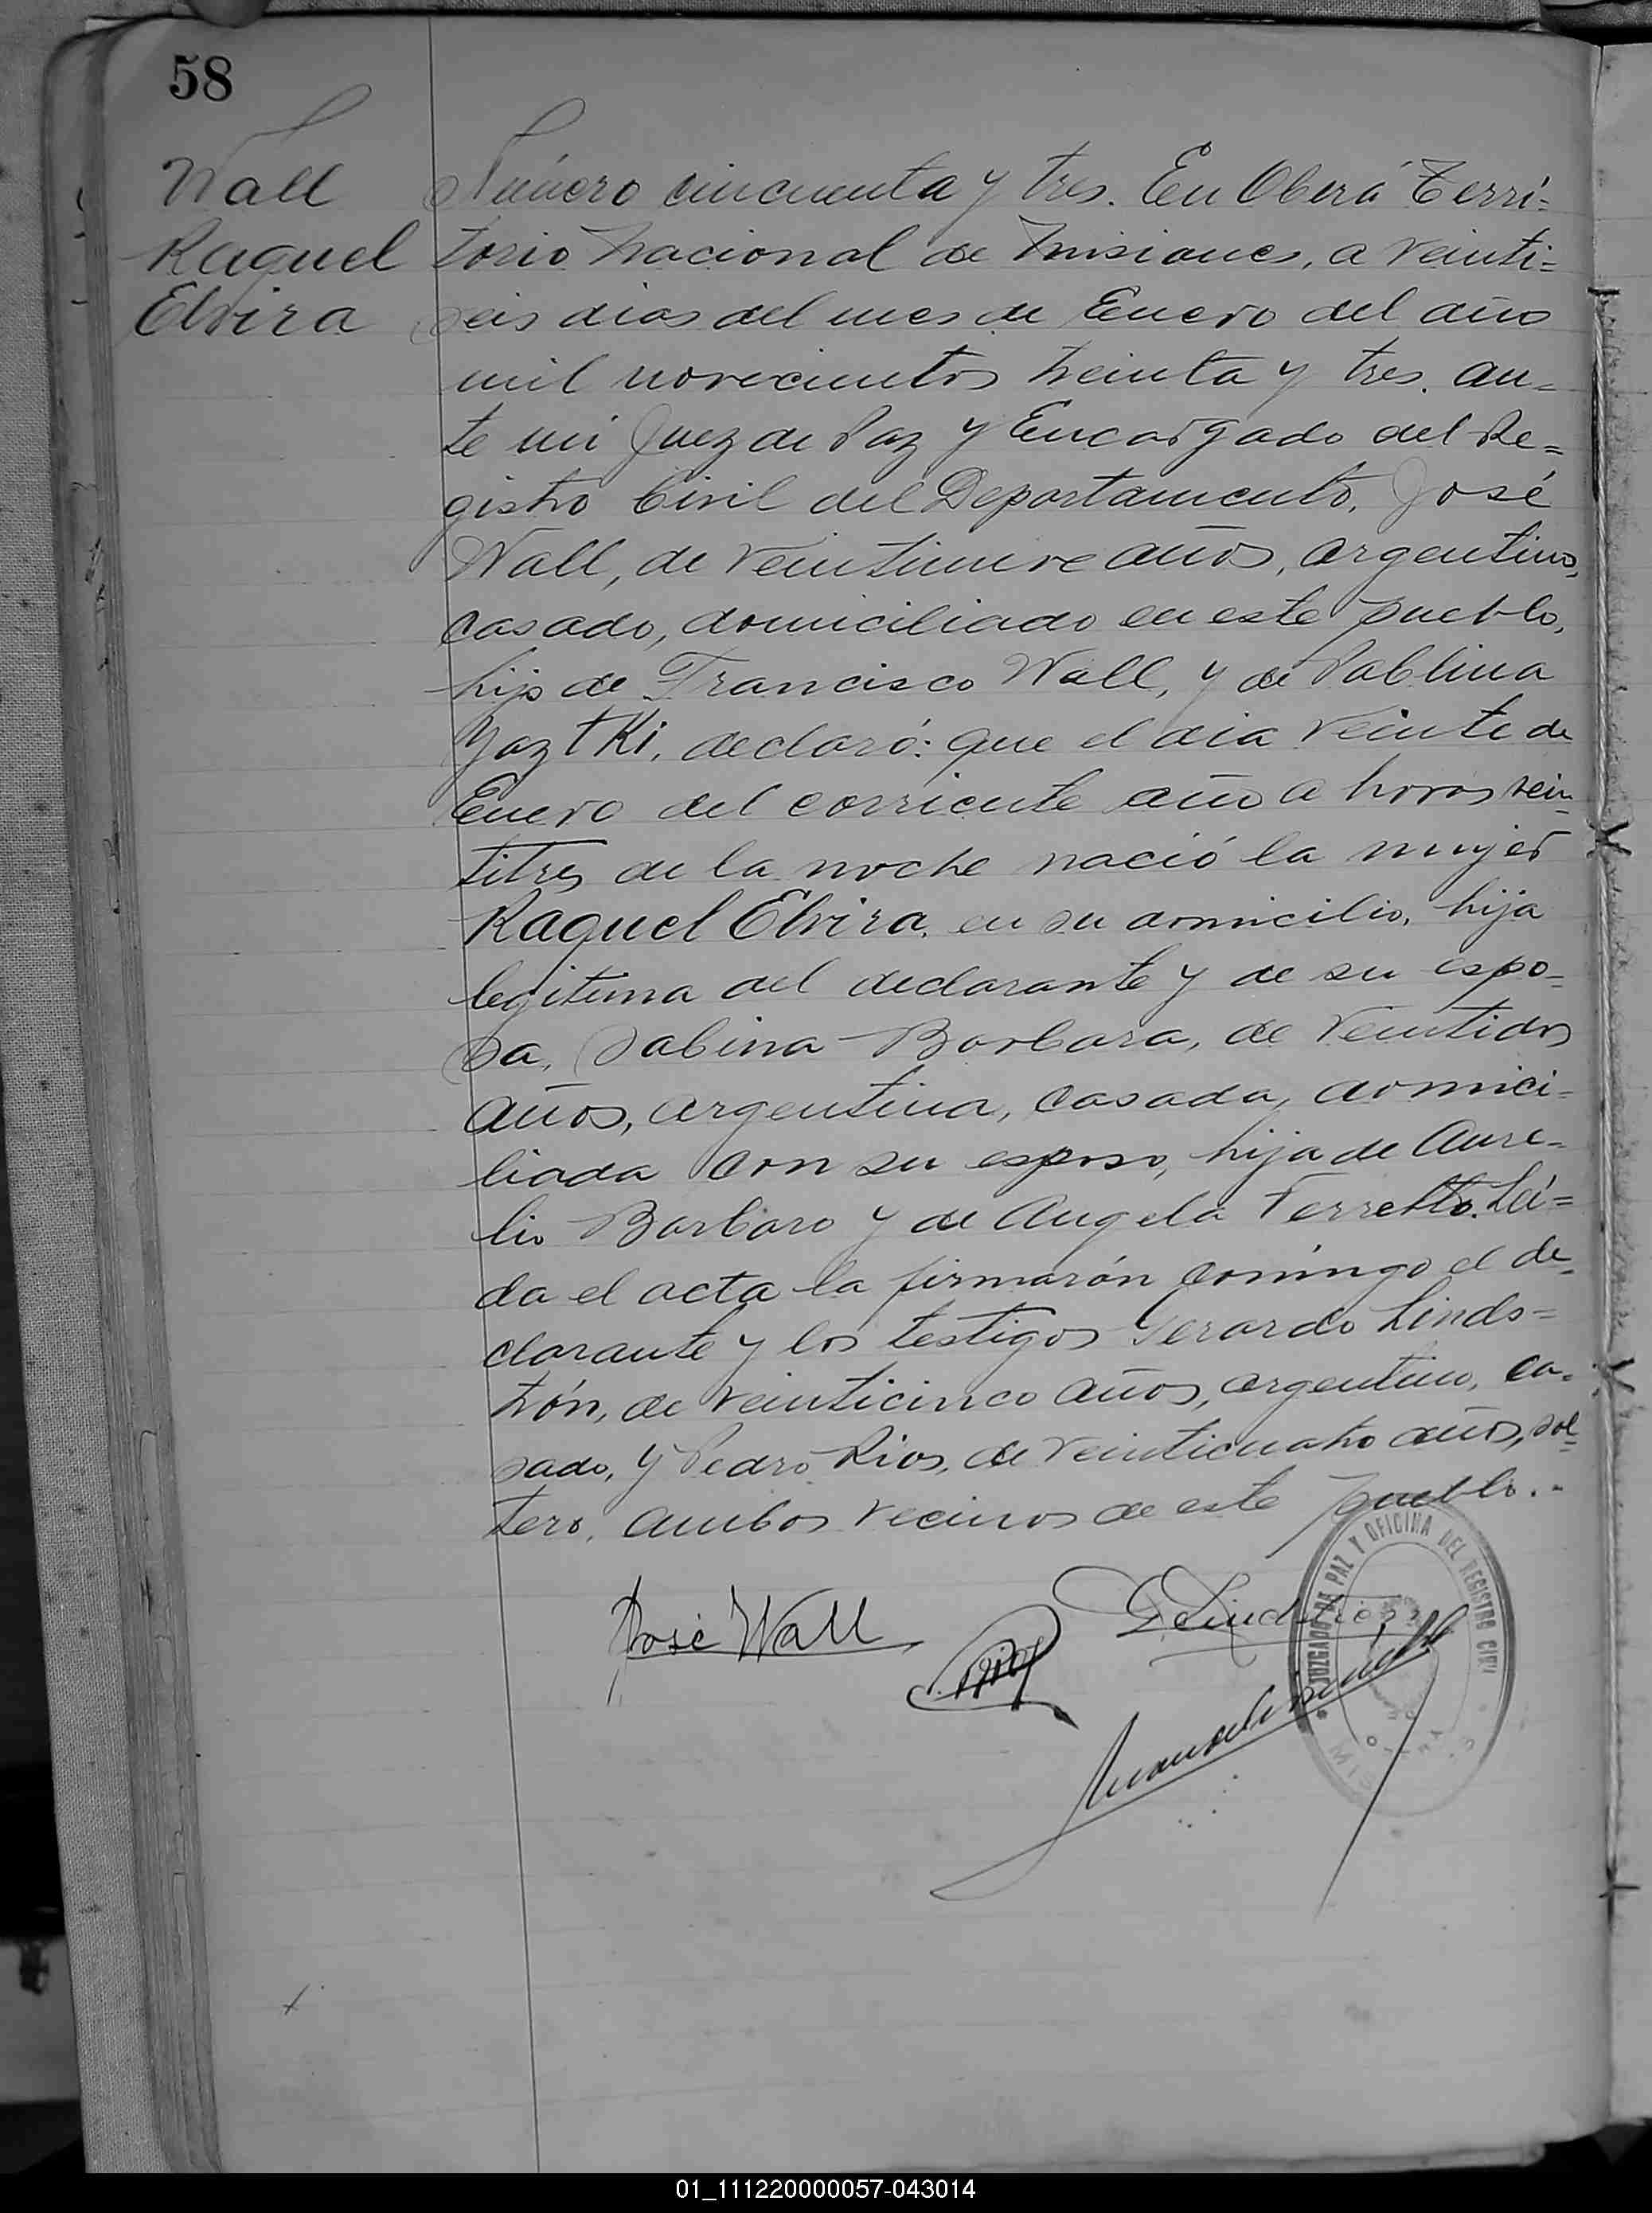 58
Wall
Raquel
Elvira
Número cincuenta y tres. En Oberá Terri=
torio Nacional de Misiones, a veinti=
seis dias del mes de Enero del año
mil novecientos treinta y tres. an=
te mi Juez de Paz y Encargado del Re=
gistro Civil del Departamento, José
Wall, de veintinueve años, argentino,
casado, domiciliado en este pueblo,
hijo de Francisco Wall, y de Pablina
YaztKi, declaró: que el dia veinte de
Enero del corriente año a horas vein
titres de la noche nació la mujer
Raquel Elvira, en su domicilio, hija
legitima del declarante y de su espo=
sa, Sabina Barbara, de veintidos
años, argentina, casada, domici=
liada con su esposo, hija de Aure=
lio Barbaro y de Angela Ferretto. Leí=
da el acta la firmarón conmigo el de=
clarante y los testigos Gerardo Linds=
trón, de veinticinco años, argentino, ca=
sado, y Pedro Rios, de veinticuatro años, sol=
tero, ambos vecinos de este pueblo.-
José Wall
G Lindstrón
P. Rios
JUZGADO DE PAZ Y OFICINA DEL REGISTRO CIVIL
01_111220000057-043014